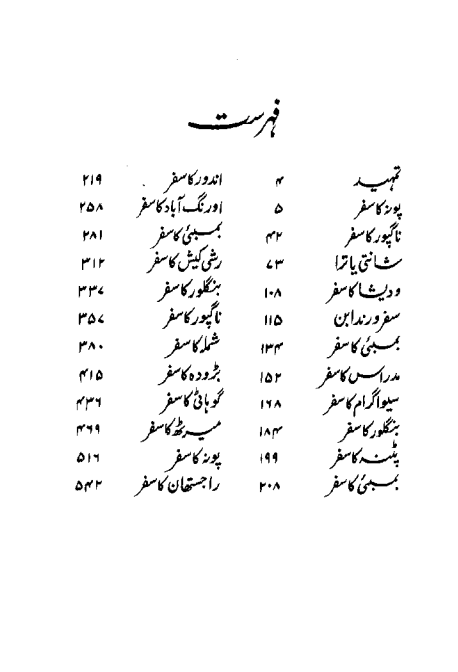 فہرست
تمہید ۴
پونہ کا سفر ۵
ناگپور کا سفر ۴۲
شانتی یاترا ۷۳
ودیشا کا سفر ۱۰۸
سفر ورندابن ۱۱۵
بمبئی کا سفر ۱۳۴
مدراس کا سفر ۱۵۲
سیواگرام کا سفر ۱۶۸
بنگلور کا سفر ۱۸۴
پٹنہ کا سفر ۱۹۹
بمبئی کا سفر ۲۰۸
اندور کا سفر ۲۱۹
اورنگ آباد کا سفر ۲۵۸
بمبئی کا سفر ۲۸۱
رشی کیش کا سفر ۳۱۲
بنگلور کا سفر ۳۳۷
ناگپور کا سفر ۳۵۷
شملہ کا سفر ۳۸۰
بڑودہ کا سفر ۴۱۵
گوہاٹی کا سفر ۴۳۶
میرٹھ کا سفر ۴۶۹
پونہ کا سفر ۵۱۶
راجستھان کا سفر ۵۴۲